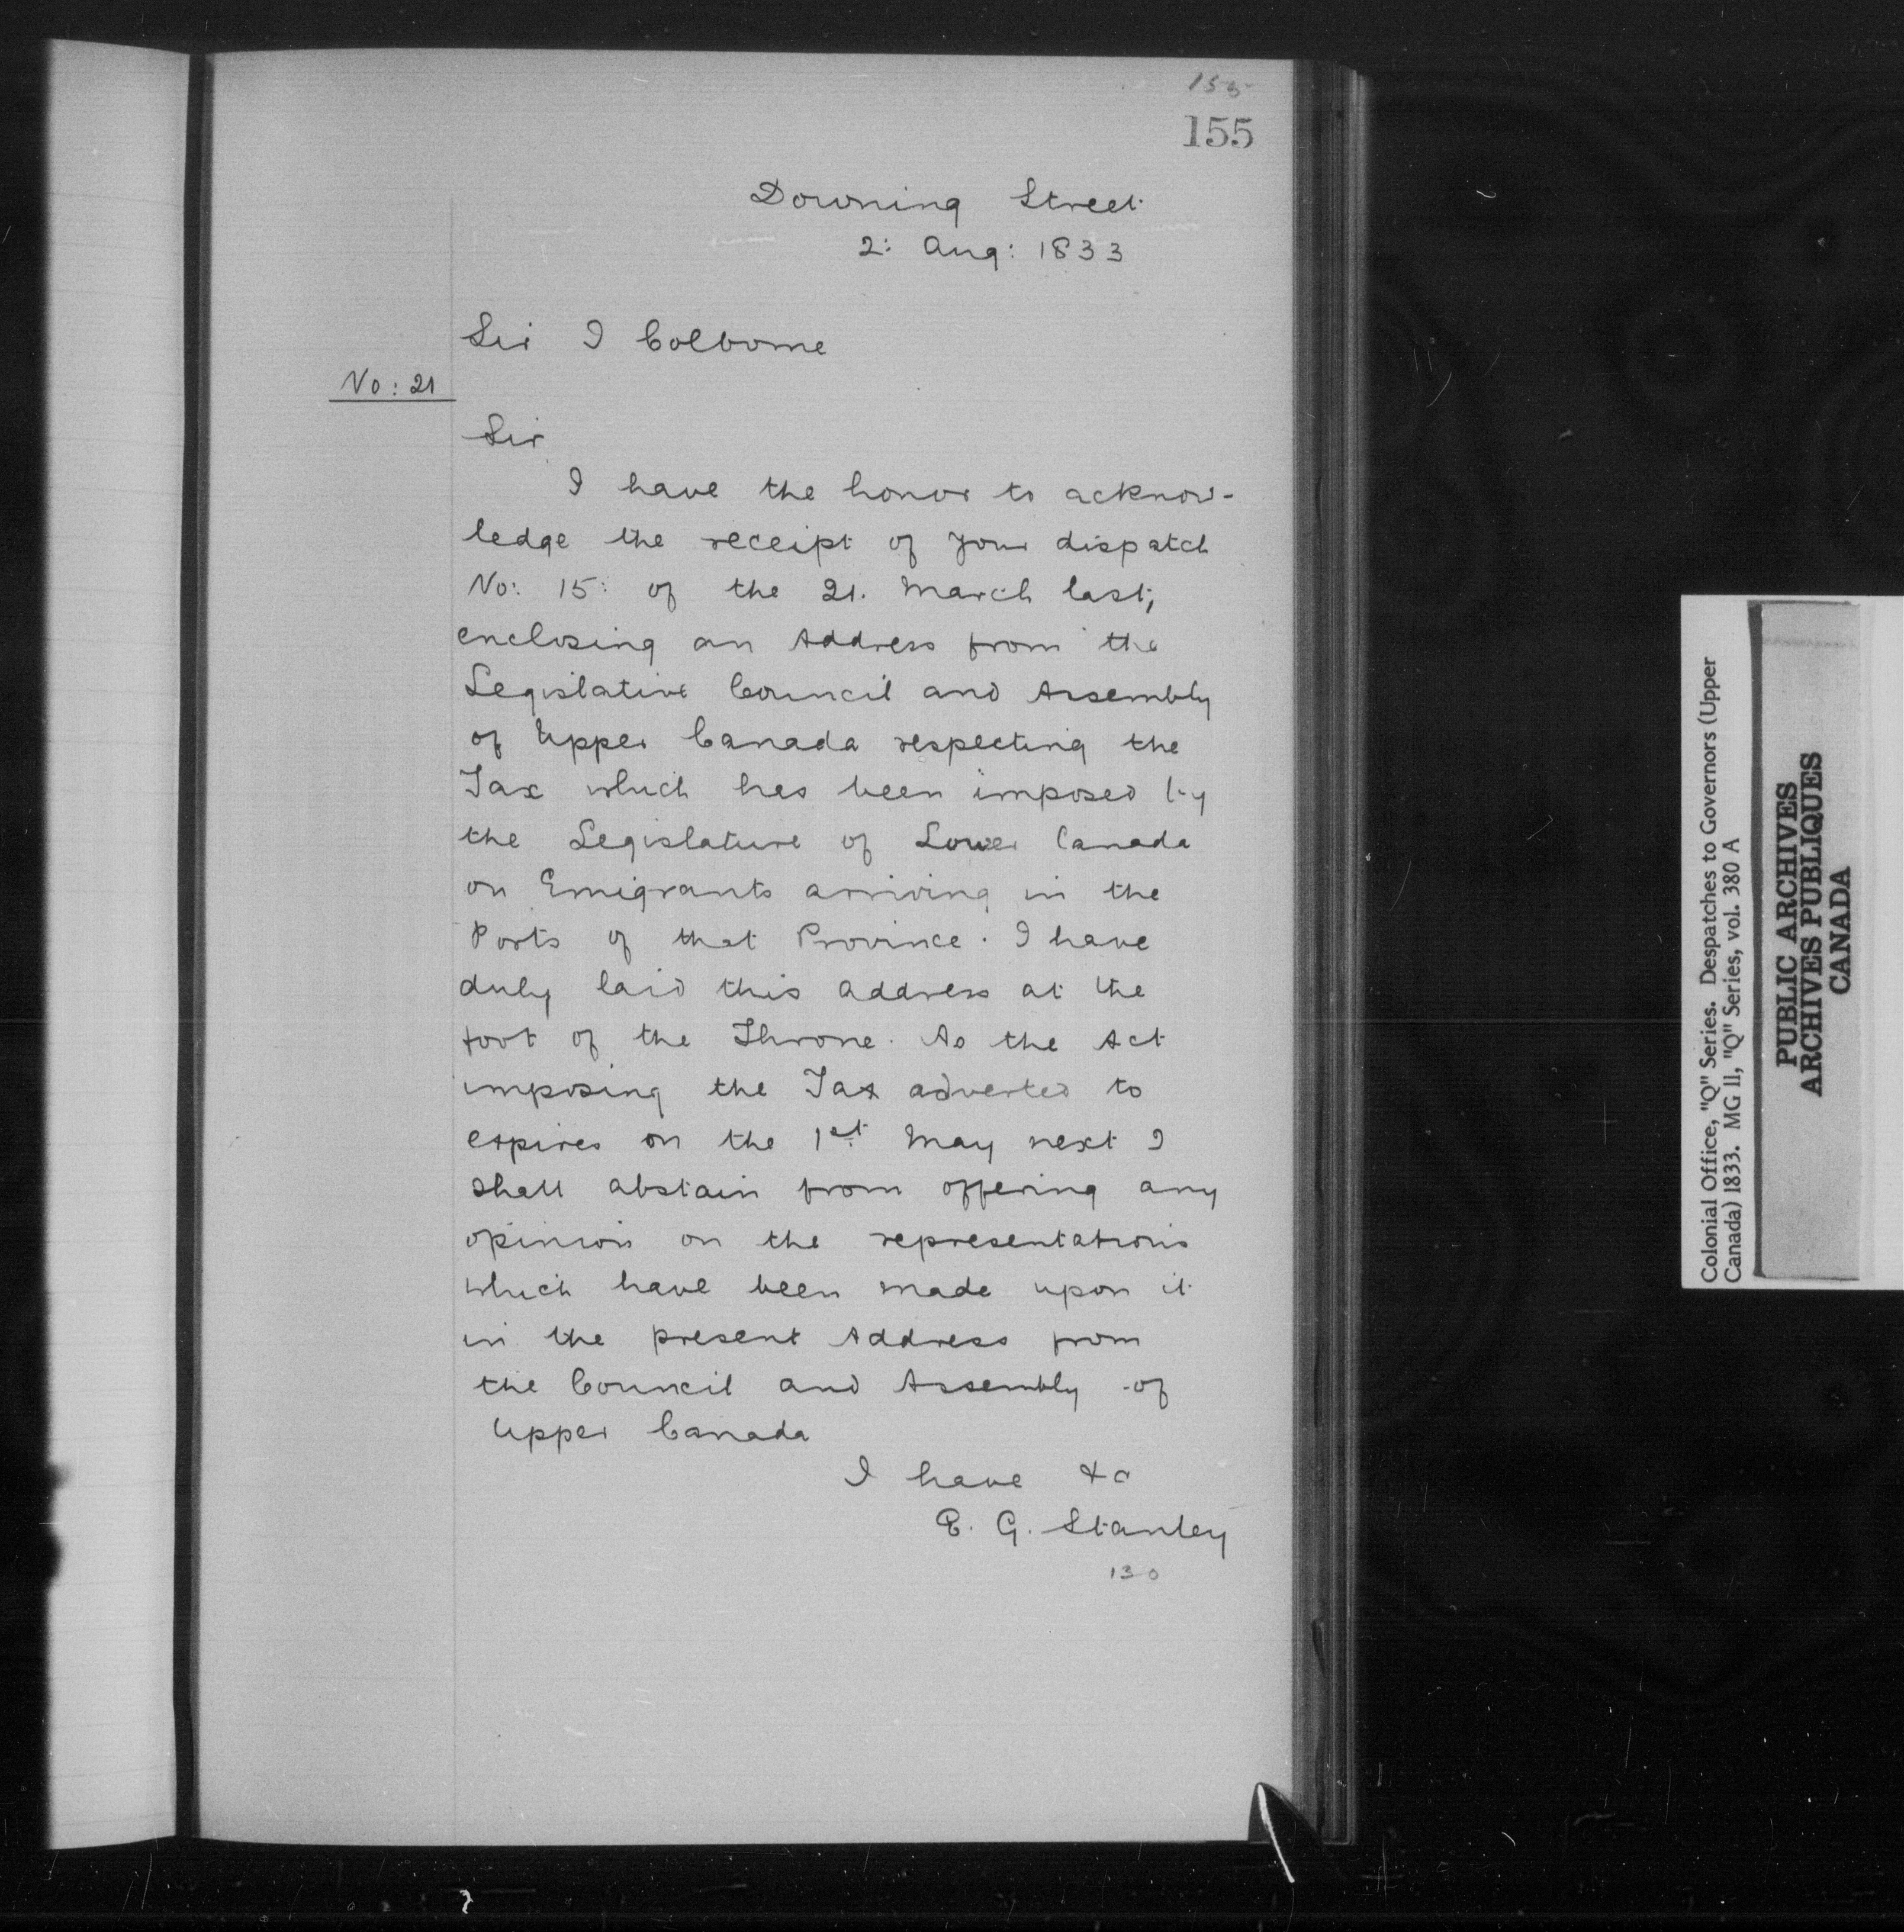 155
155
Downing Street
2: Aug: 1833
Sir J Colborne
No: 21
Sir
I have the honor to acknow-
ledge the receipt of your dispatch
No: 15: of the 21. March last;
enclosing an Address from the
Legislative Council and Assembly
of Upper Canada respecting the
Tax which has been imposed by
the Legislature of Lower Canada
on Emigrants arriving in the
Ports of that Province. I have
duly laid this address at the
foot of the Throne. As the Act
imposing the Tax adverted to
expires on the 1st May next I
shall abstain from offering any
opinion on the representations
which have been made upon it
in the present Address from
the Council and Assembly of
Upper Canada
I have &c
E. G. Stanley
130
Colonial Office, "Q" Series. Despatches to Governors (Upper
Canada) 1833. MG 11, "Q" Series, vol. 380 A
PUBLIC ARCHIVES
ARCHIVES PUBLIQUES
CANADA